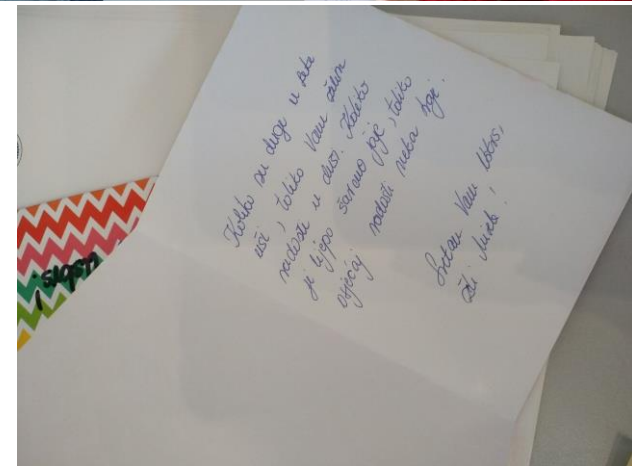 Koliko su duge u zeke
uši, toliko Vam želim
radosti u duši. Koliko
je lijepo šarano jaje, toliko
osjećaj radosti neka traje.
Sretan Vam Uskrs,
želi
Uskrs!